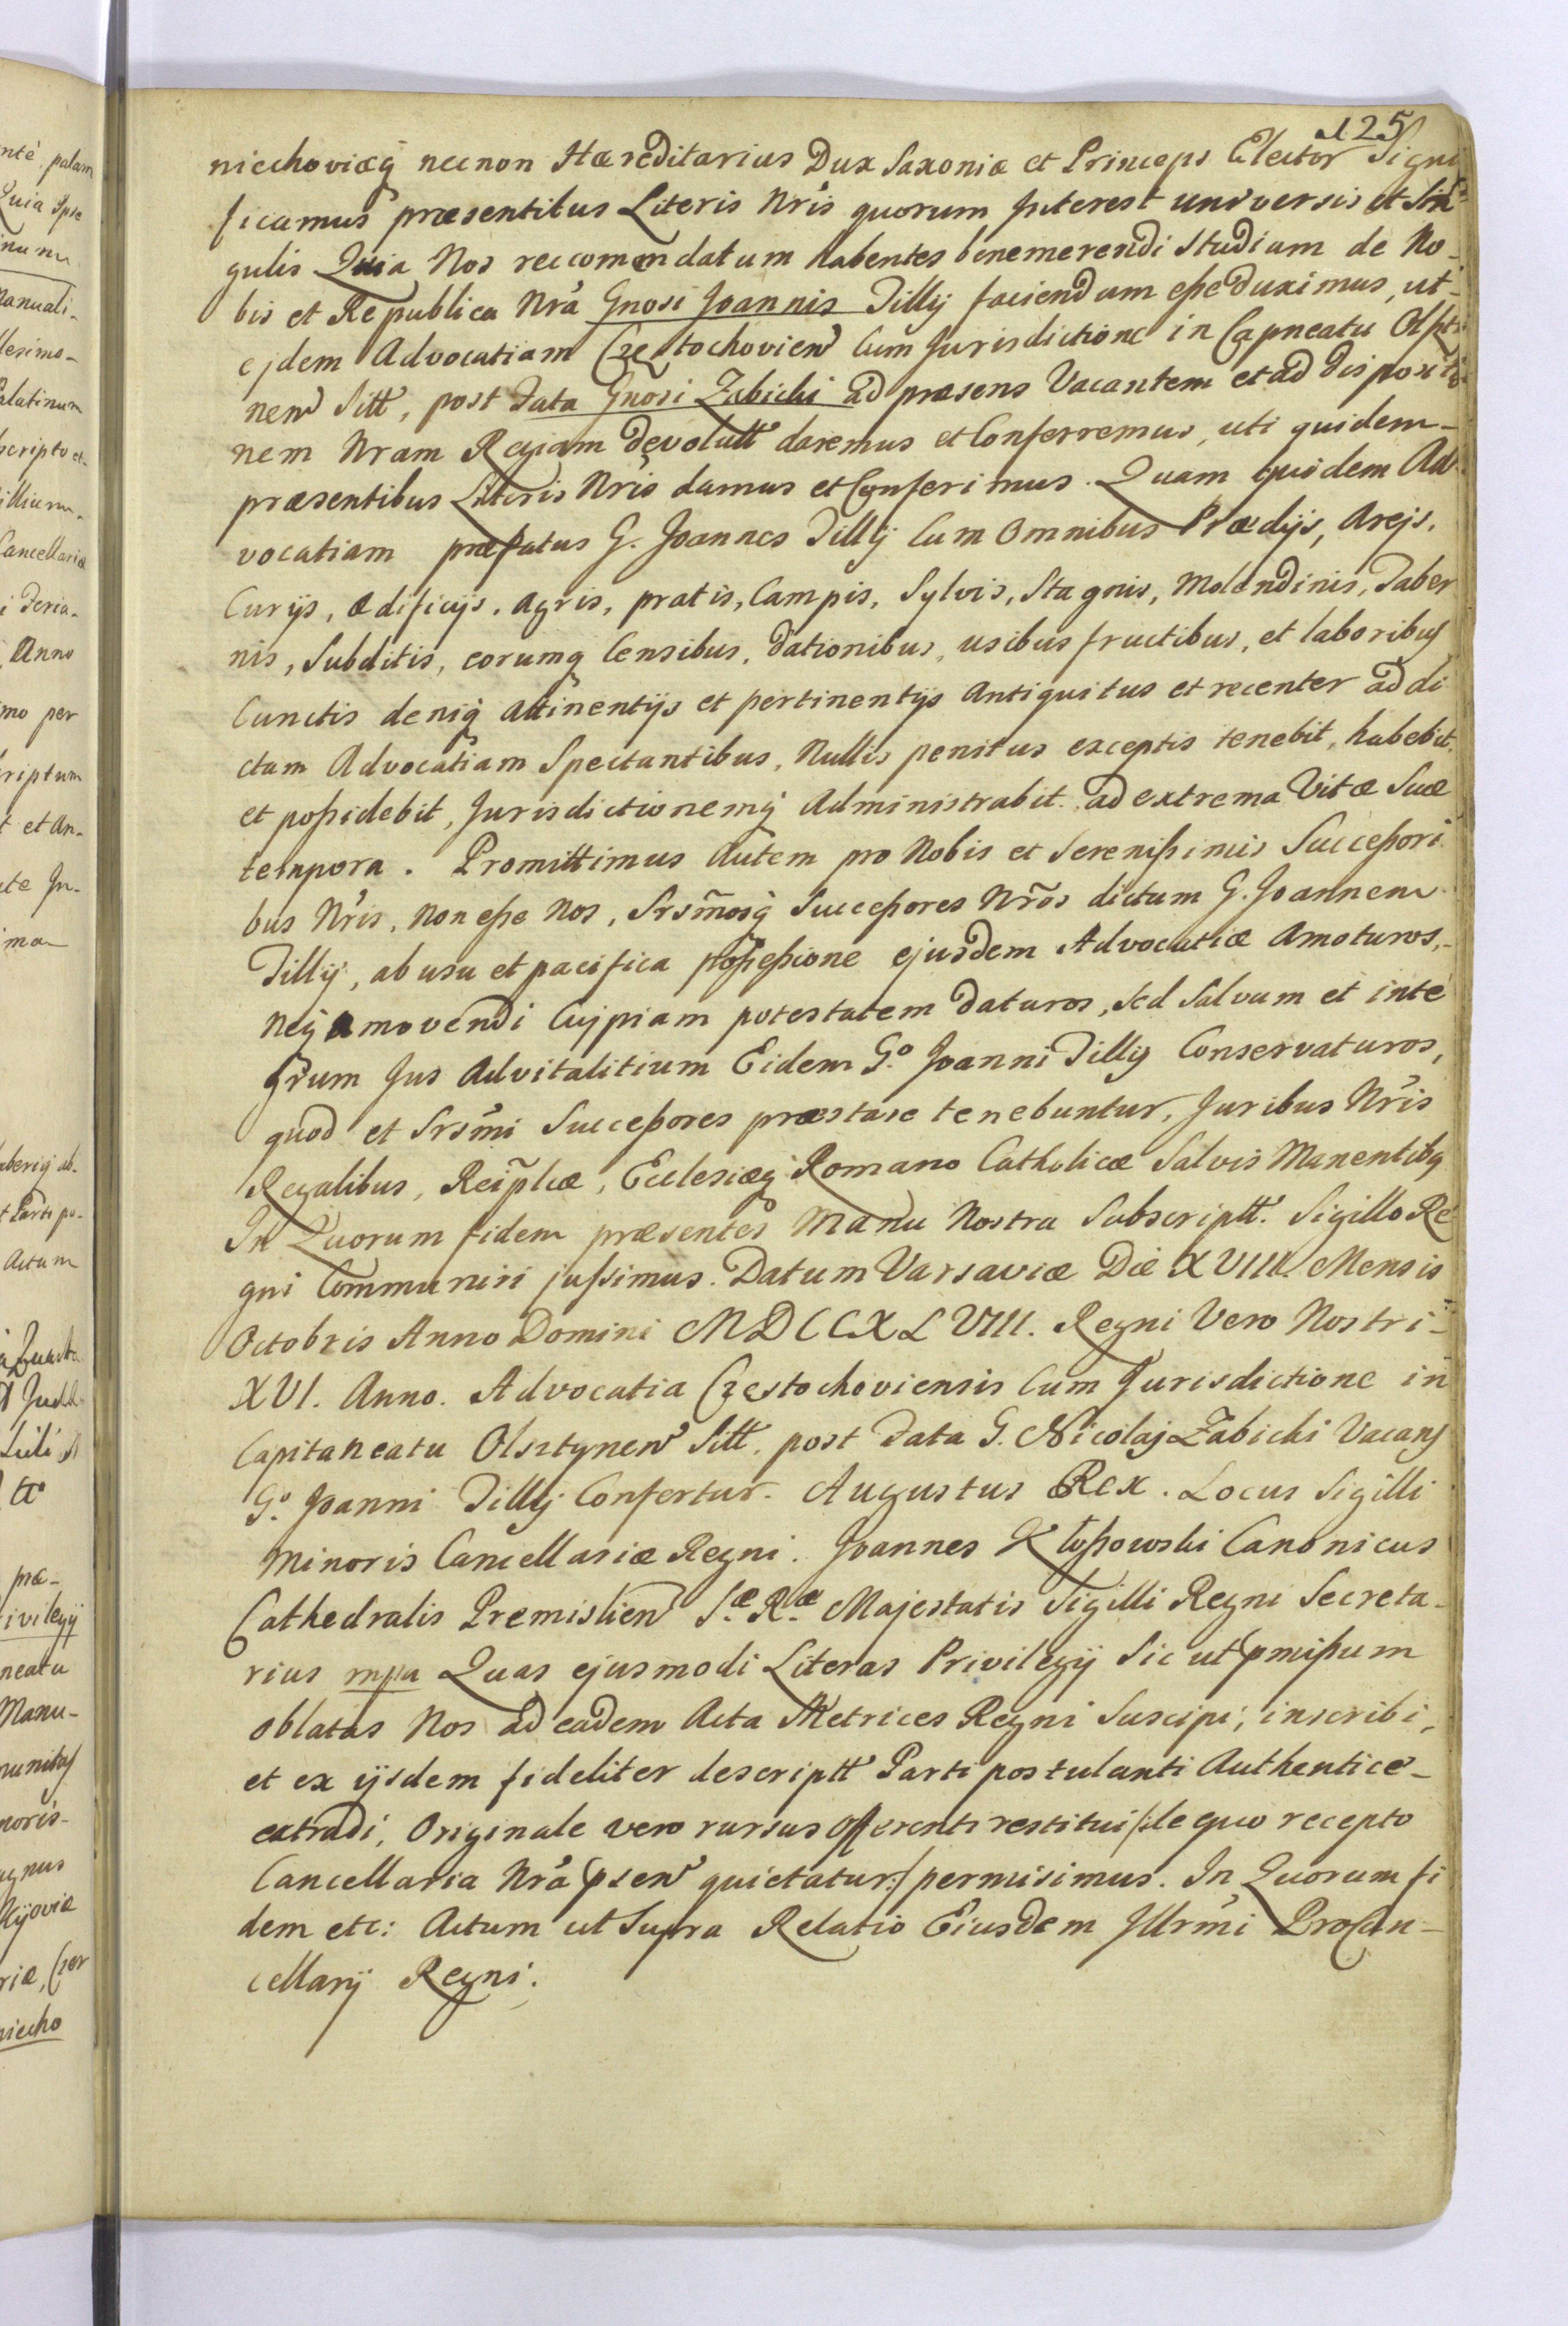 125
niechoviæq́ necnon Hæreditarius Dux Saxoniæ et Princeps Elector Signi
ficamus præsentibus Literis Nrís quorum Interest universis et Sin
gulis Quia Nos reccomendatum habentes benemerendi Studium de No-
bis et Republica Nrá Gnosi Joannis Tilly faciendum eße duximus, ut-
ejdem Advocatiam Częstochovien Cum Jurisdictione in Capneatu Olszty
nen Sitt, post Fata Gnosi Zabicki ad præsens Vacantem et ad dispositio
nem Nram Regiam devolutt daremus et Conferremus, uti quidem-
præsentibus Literis Nris damus et Conferimus. Quam quidem Ad-
vocatiam præfatus G. Joannes Tilly Cum Omnibus Prædijs, Arejs,
Curijs, ædificijs, Agris, pratis, Campis, Sylvis, Stagnis, Molendinis, Taber
nis, Subditis, eorumq Censibus, Dationibus, usibus fructibus, et laboribus
Cunctis deniq́ Attinentijs et pertinentijs Antiquitus et recenter ad di
ctam Advocatiam Spectantibus, Nullis penitus exceptis tenebit, habebit,
et poßidebit, Jurisdictionemq́ Administrabit ad extrema Vitæ Suæ
tempora. Promittimus Autem pro Nobis et Sereníßimis Succeßori
bus Nris, Non eße Nos, Srsm̃osq́ Succeßores Nrõs dictum G. Joannem
Tilly, ab usu et pacifica poßeßione ejusdem Advocatiæ Amoturos,-
neq́ amovendi Cujpiam potestatem Daturos, Sed Salvum et inte
grum Jus Advitalitium Eidem G.o Joanni Tilly Conservaturos,
quod et Srsm̃i Succeßores præstare tenebuntur, Juribus Nris
Regalibus, Reip̃licæ, Ecclesiæq́ Romano Catholicæ Salvis Manentibq
In Quorum fidem præsentes Manu Nostra Subscriptt. Sigillo Re
gni Communiri jußimus. Datum Varsaviæ Die XVIII. Mensis
Octobris Anno Domini MDCCXLVIII. Regni Vero Nostri-
XVI. Anno. Advocatia Częstochoviensis Cum Jurisdictione in
Capitaneatu Olsztynen Sitt. post Fata G. Nicolaj Zabicki Vacans
G.o Joanni Tilly Confertur. Augustus Rex. Locus Sigilli
Minoris Cancellariæ Regni. Joannes Kłoßowski Canonicus
Cathedralis Premislien S.æ R.æ Majestatis Sigilli Regni Secreta-
rius mpa Quas ejusmodi Literas Privilegij Sic ut pmißum
oblatas Nos ad eadem Acta Metrices Regni Suscipi, inscribi,
et ex ijsdem fideliter descriptt Parti postulanti Authentice-
extradi, Originale vero rursus Offerenti restitui /:de quo recepto
Cancellaria Nrá psen quietatur:/ permisimus. In Quorum fi
dem etc: Actum ut Supra Relatio Eiusdem Illrm̃i ProCan-
cellarij Regni.